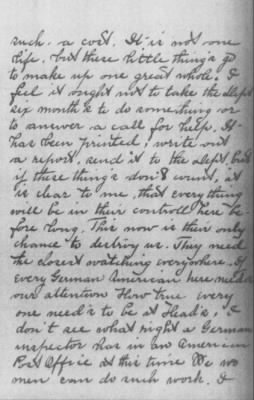 such a cost. It is not one
life, but these little things go
to make up one great whole. I
feel it ought not to take the dept
six month's to do something or
to answer a call for help. It
has been printed, write out
a report, send it to the dept, but
if these things don't count, it
is clear to me, that everything
will be in their controll here be-
fore long. This now is their only
chance to destroy us. They need
the closest watching everywhere. If
every German American here needs
our attention How true every
one need's to be at Head's, I
don't see what right a German
inspector has in an American
Post Office at this time We wo
men can do such work. I